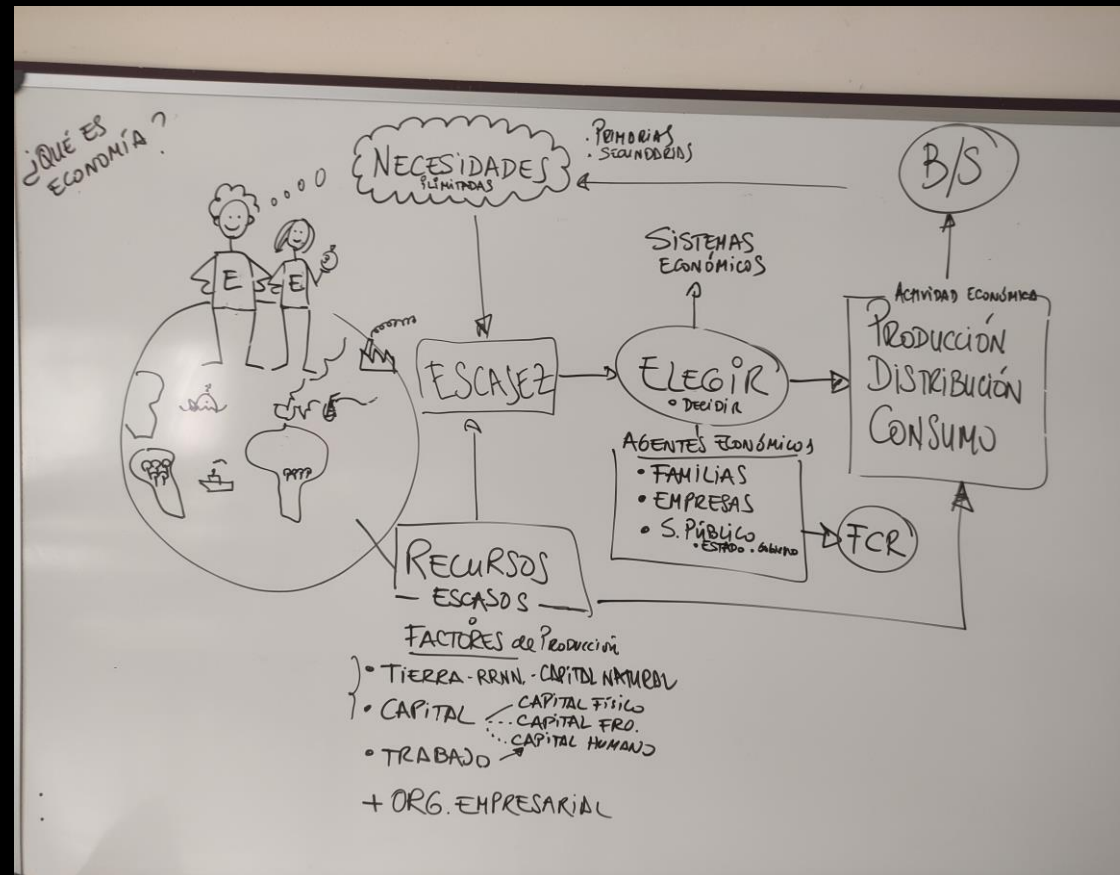 ¿QUÉ ES
ECONOMÍA?
NECESIDADES
ILIMITADAS
. PRIMARIAS
. SECUNDARIAS
B/S
E
E
SISTEMAS
ECONÓMICOS
ESCASEZ
ELEGIR
• DECIDIR
ACTIVIDAD ECONÓMICA
PRODUCCIÓN
DISTRIBUCIÓN
CONSUMO
AGENTES ECONÓMICOS
• FAMILIAS
• EMPRESAS
• S. PÚBLICO
• ESTADO • Gobierno
FCR
RECURSOS
— ESCASOS —
o
FACTORES de PRODUCCIÓN
• TIERRA - RRNN. - CAPITAL NATURAL
• CAPITAL
CAPITAL FÍSICO
CAPITAL FRO.
CAPITAL HUMANO
• TRABAJO
+ ORG. EMPRESARIAL